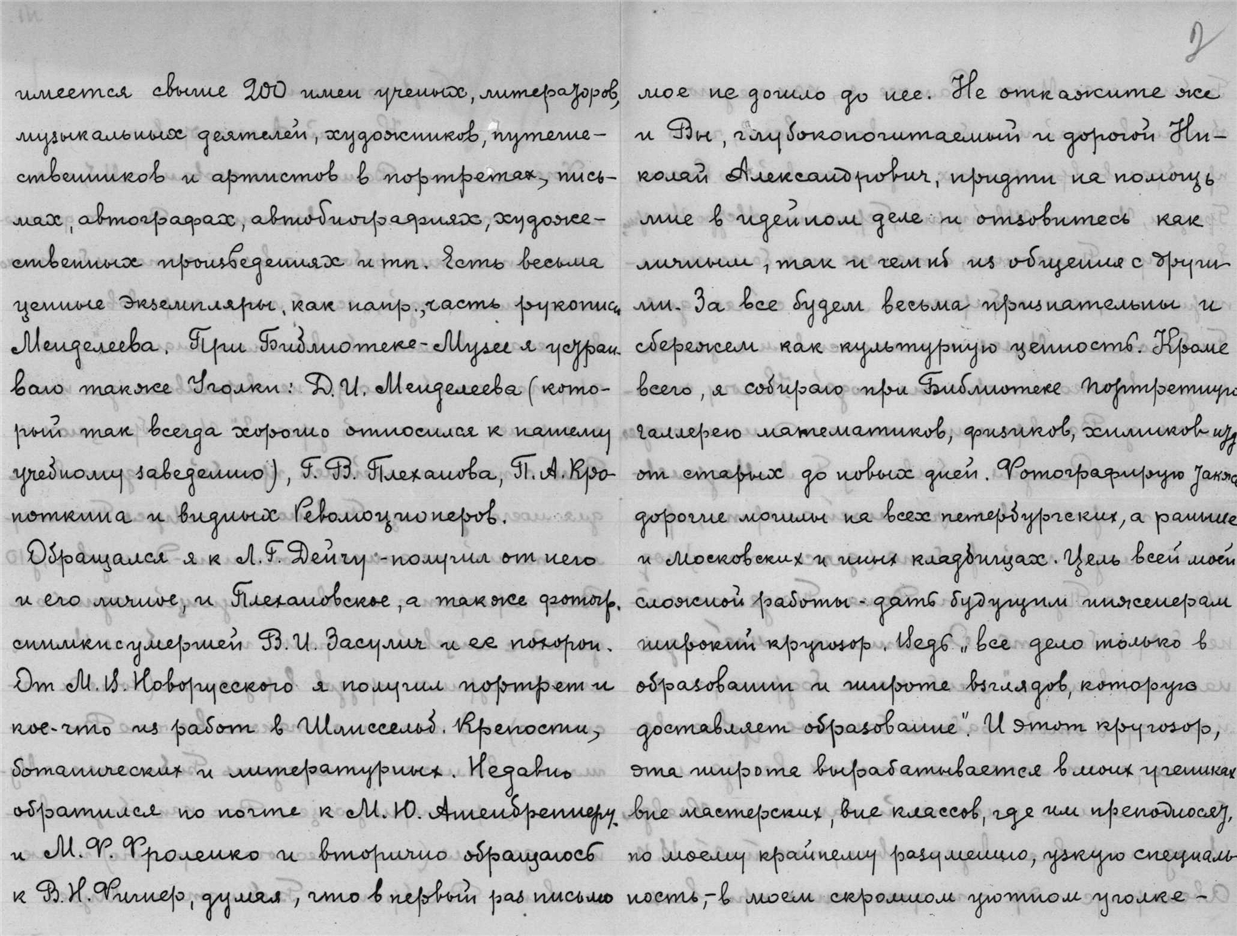 2
имеется свыше 200 имен ученых, литераторов,
музыкальных деятелей, художников, путеше-
ственников и артистов в портретах, пись-
мах, автографах, автобиографиях, художе-
ственных произведениях и тп. Есть весьма
ценные экземпляры, как напр., часть рукописи
Менделеева. При Библиотеке-Музее я устраи-
ваю также Уголки: Д. И. Менделеева (кото-
рый так всегда хорошо относился к нашему
учебному заведению), Г. В. Плеханова, П. А. Кро-
поткина и видных Революционеров.
Обращался я к Л. Г. Дейчу - получил от него
и его личное, и Плехановское, а также фотогр.
снимки с умершей В. И. Засулич и ее похорон.
От М. В. Новорусского я получил портрет и
кое-что из работ в Шлиссельб. Крепости,
ботанических и литературных. Недавно
обратился по почте к М. Ю. Ашенбреннеру
и М. Ф. Фроленко и вторично обращаюсь
к В. Н. Фигнер, думая, что в первый раз письмо
мое не дошло до нее. Не откажите же
и Вы, глубокопочитаемый и дорогой Ни-
колай Александрович, придти на помощь
мне в идейном деле и отзовитесь как
личным, так и чем нб из общения с други-
ми. За все будем весьма признательны и
сбережем как культурную ценность. Кроме
всего, я собираю при Библиотеке Портретную
галлерею математиков, физиков, химиков
от старых до новых дней. Фотографирую также
дорогие могилы на всех петербургских, а раньше
и Московских и иных кладбищах. Цель всей моей
сложной работы - дать будущим инженерам
широкий кругозор. Ведь „все дело только в
образовании и широте взглядов, которую
доставляет образование". И этот кругозор,
эта широта вырабатывается в моих учениках
вне мастерских, вне классов, где им преподносят,
по моему крайнему разумению, узкую специаль-
ность, - в моем скромном уютном уголке -